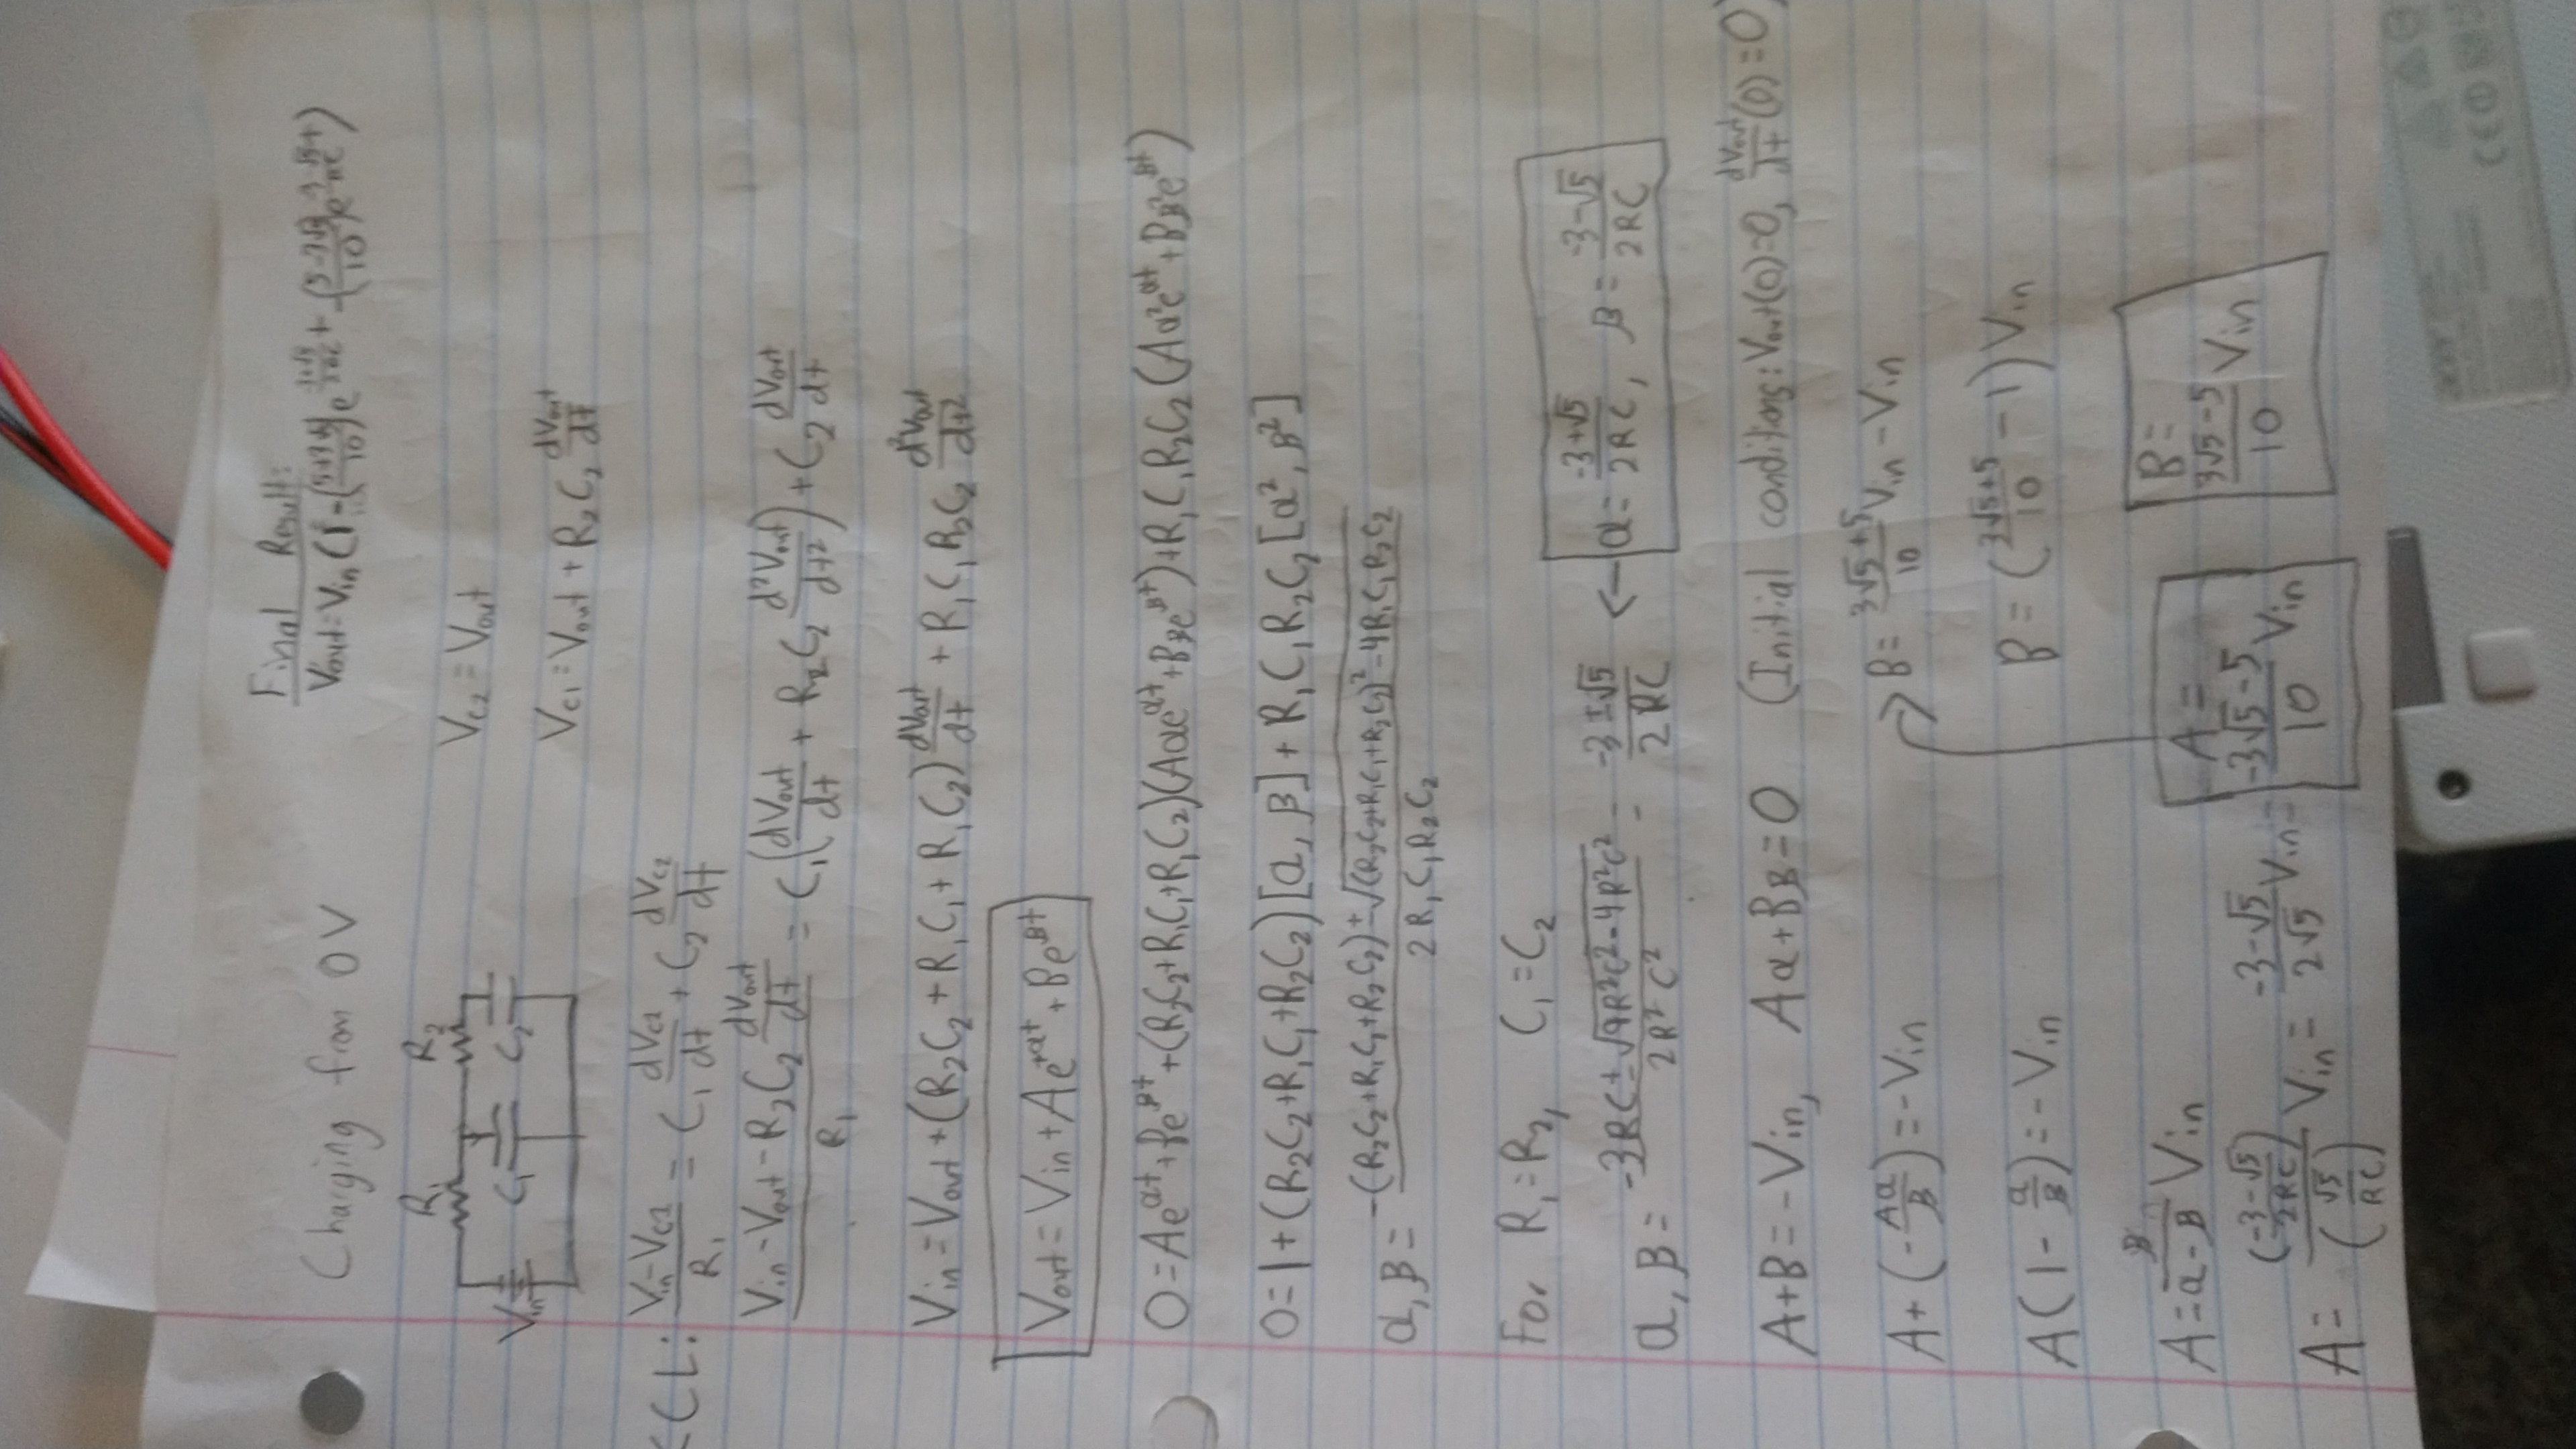 Final Result:
Vout = Vin (1 - (5+3√5/10)e^(-3+√5/2RC t) - (5-3√5/10)e^(-3-√5/2RC t))
Charging from 0V
R₁ R₂
Vin C₁ C₂
Vc2 = Vout
Vc1 = Vout + R₂C₂ dVout/dt
KCL: (Vin - Vc1)/R₁ = C₁ dVc1/dt + C₂ dVc2/dt
(Vin - Vout - R₂C₂ dVout/dt)/R₁ = C₁(dVout/dt + R₂C₂ d²Vout/dt²) + C₂ dVout/dt
Vin = Vout + (R₂C₂ + R₁C₁ + R₁C₂) dVout/dt + R₁C₁R₂C₂ d²Vout/dt²
Vout = Vin + Ae^(+αt) + Be^(βt)
0 = Ae^(αt) + Be^(βt) + (R₂C₂+R₁C₁+R₁C₂)(Aαe^(αt) + Bβe^(βt)) + R₁C₁R₂C₂(Aα²e^(αt) + Bβ²e^(βt))
0 = 1 + (R₂C₂+R₁C₁+R₂C₂)[α, β] + R₁C₁R₂C₂[α², β²]
α, β = (-(R₂C₂+R₁C₁+R₂C₂) ± √((R₂C₂+R₁C₁+R₂C₂)² - 4R₁C₁R₂C₂))/(2R₁C₁R₂C₂)
For R₁ = R₂, C₁ = C₂
α, β = (-3RC ± √(9R²C² - 4R²C²))/(2R²C²) = (-3 ± √5)/(2RC) ← α = (-3+√5)/(2RC), β = (-3-√5)/(2RC)
A + B = -Vin, Aα + Bβ = 0 (Initial conditions: Vout(0)=0, dVout/dt(0)=0)
A + (-Aα/β) = -Vin
A(1 - α/β) = -Vin
A = β/(α-β) Vin
A = ((-3-√5)/(2RC))/(√5/RC) Vin = (-3-√5)/(2√5) Vin = A = (-3√5-5)/10 Vin
B = (3√5+5)/10 Vin - Vin
B = ((3√5+5)/10 - 1) Vin
B = (3√5-5)/10 Vin
acer
CE